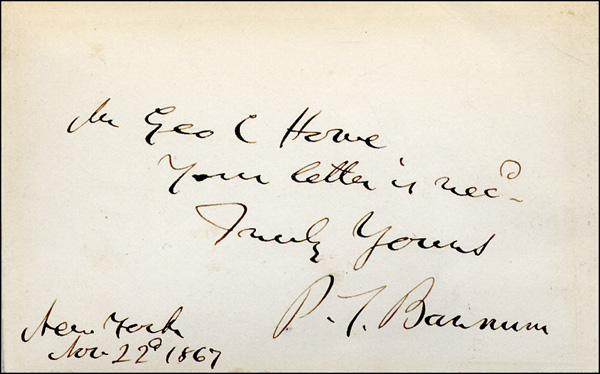 Mr Geo C Howe
Your letter is rec'd.
Truly Yours
P. T. Barnum
New York
Nov 22d 1867